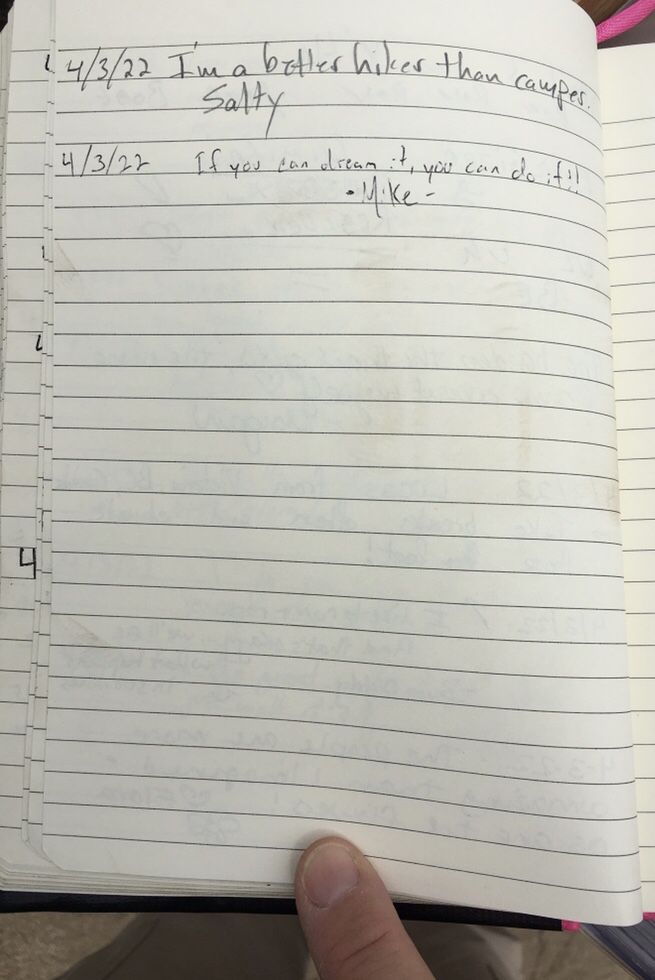 4/3/22 I'm a better hiker than camper.
Salty
4/3/22 If you can dream it, you can do it!!
- Mike -
4